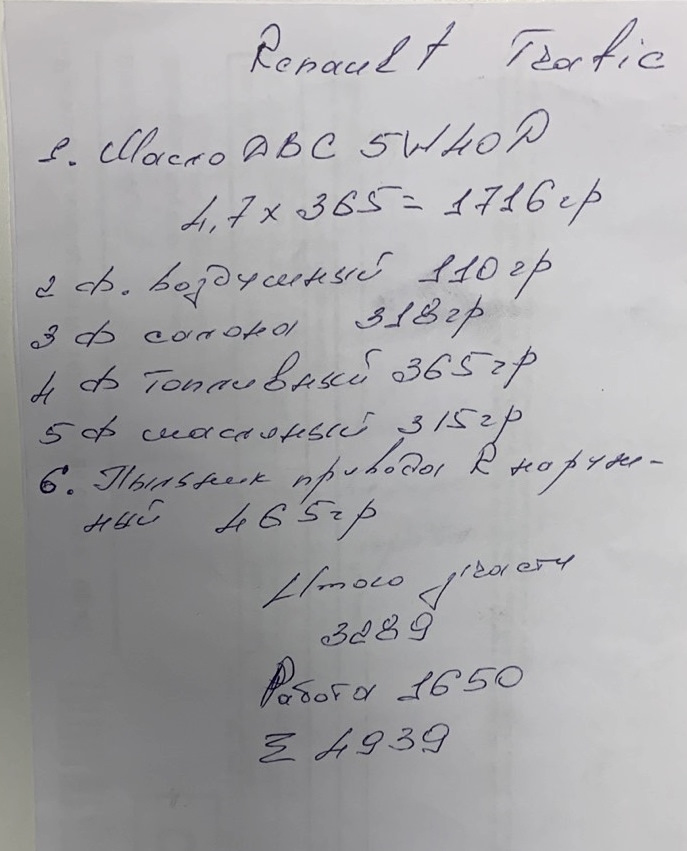 Renault Trafic
1. Масло ДВС 5W40 D
4,7 x 365 = 1716 гр
2 ф. воздушный 110 гр
3 ф салона 318 гр
4 ф топливный 365 гр
5 ф масляный 315 гр
6. Пыльник привода R наруж-
ный 465 гр
Итого з/части
3289
Работа 1650
Σ 4939